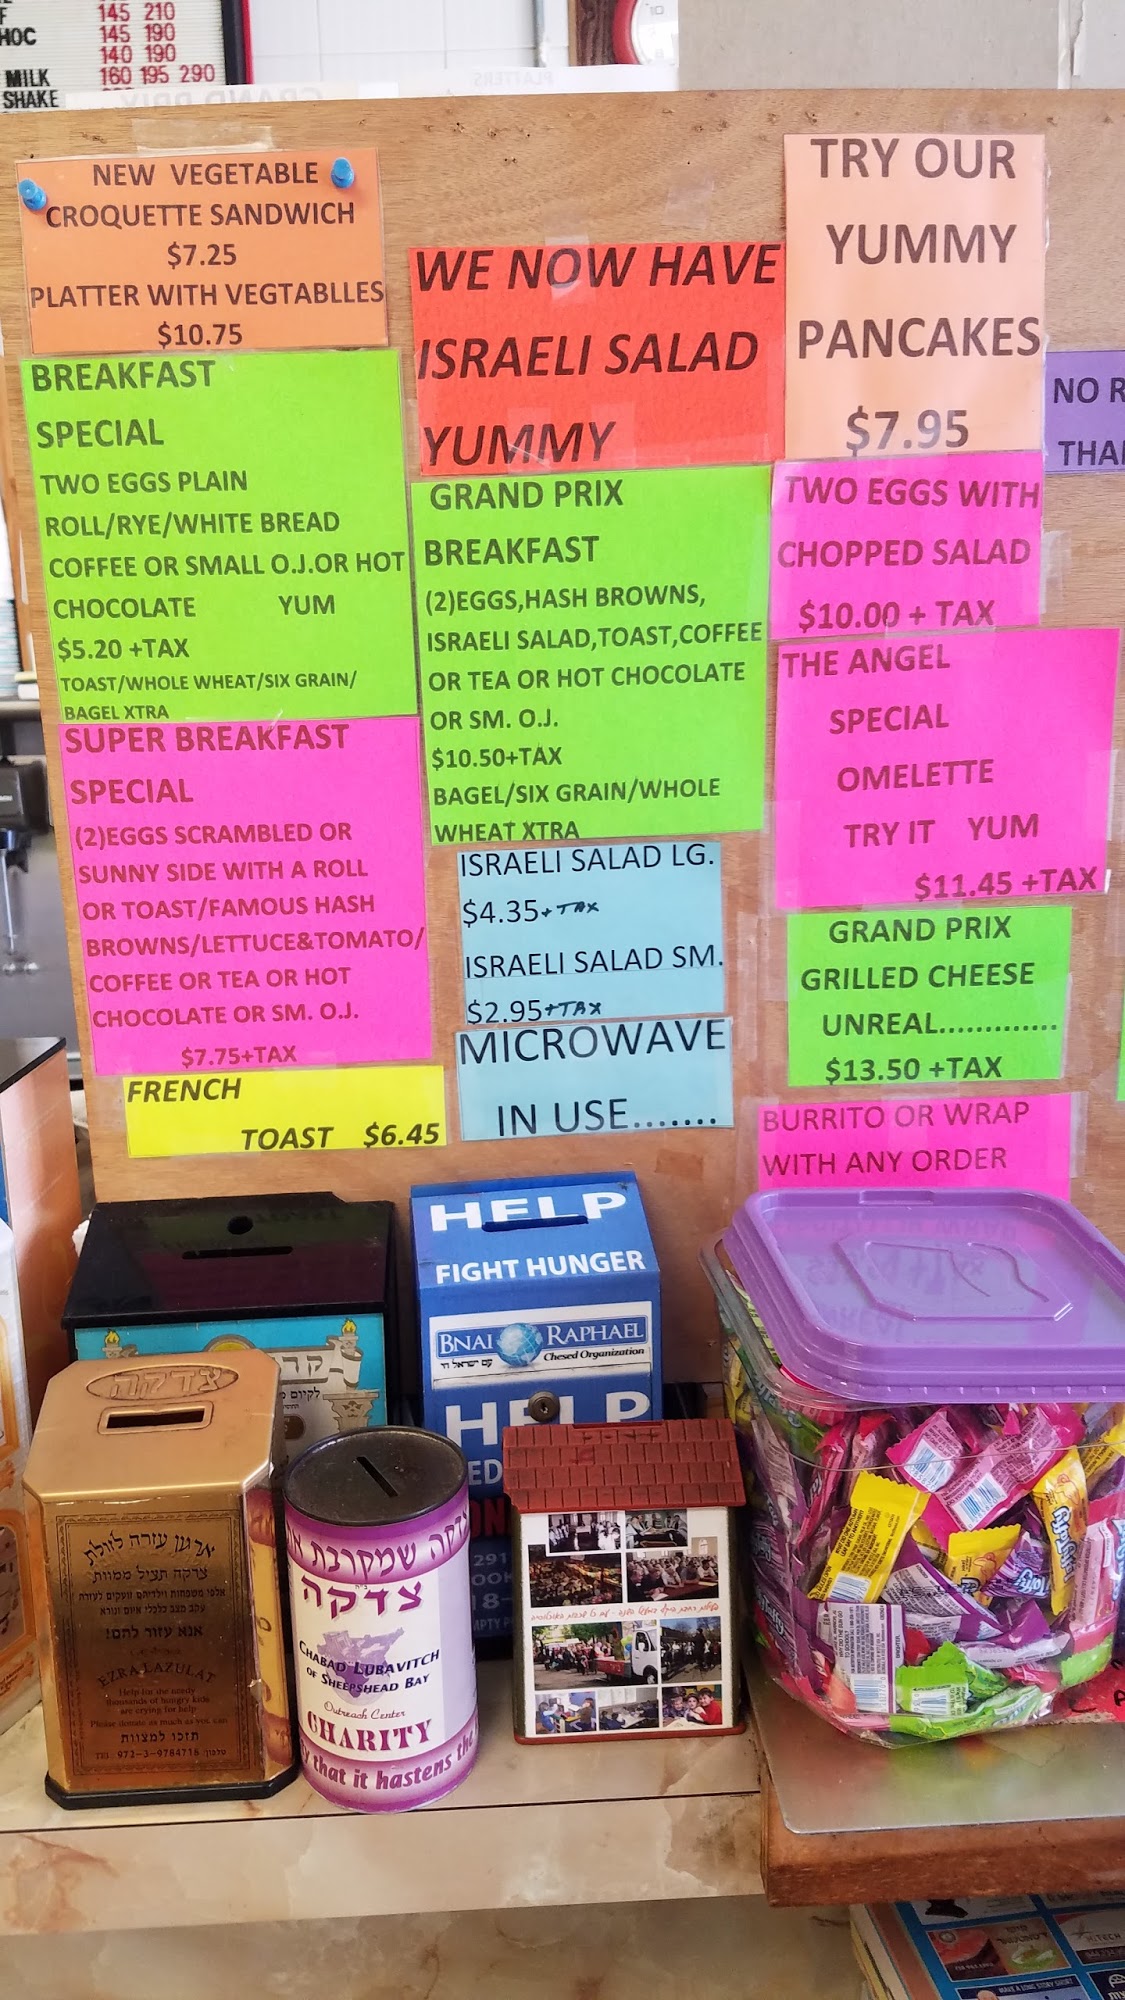 145 210
HOC 145 190
140 190
MILK 160 195 290
SHAKE
PLATTERS
GRAND PRIX
NEW VEGETABLE
CROQUETTE SANDWICH
$7.25
PLATTER WITH VEGTABLLES
$10.75
BREAKFAST
SPECIAL
TWO EGGS PLAIN
ROLL/RYE/WHITE BREAD
COFFEE OR SMALL O.J.OR HOT
CHOCOLATE YUM
$5.20 +TAX
TOAST/WHOLE WHEAT/SIX GRAIN/
BAGEL XTRA
SUPER BREAKFAST
SPECIAL
(2)EGGS SCRAMBLED OR
SUNNY SIDE WITH A ROLL
OR TOAST/FAMOUS HASH
BROWNS/LETTUCE&TOMATO/
COFFEE OR TEA OR HOT
CHOCOLATE OR SM. O.J.
$7.75+TAX
FRENCH
TOAST $6.45
WE NOW HAVE
ISRAELI SALAD
YUMMY
GRAND PRIX
BREAKFAST
(2)EGGS,HASH BROWNS,
ISRAELI SALAD,TOAST,COFFEE
OR TEA OR HOT CHOCOLATE
OR SM. O.J.
$10.50+TAX
BAGEL/SIX GRAIN/WHOLE
WHEAT XTRA
ISRAELI SALAD LG.
$4.35+TAX
ISRAELI SALAD SM.
$2.95+TAX
MICROWAVE
IN USE.......
TRY OUR
YUMMY
PANCAKES
$7.95
TWO EGGS WITH
CHOPPED SALAD
$10.00 + TAX
THE ANGEL
SPECIAL
OMELETTE
TRY IT YUM
$11.45 +TAX
GRAND PRIX
GRILLED CHEESE
UNREAL.............
$13.50 +TAX
BURRITO OR WRAP
WITH ANY ORDER
NO
HELP
FIGHT HUNGER
BNAI RAPHAEL
עם ישראל חי Chesed Organization
HELP
צדקה
ארגון עזרה לזולת
צדקה תציל ממוות
אלפי משפחות וילדיהם זועקים לעזרה
עקב מצב כלכלי איום ונורא
אנא עזור להם!
EZRA LAZULAT
Help for the needy
thousands of hungry kids
are crying for help
Please donate as much as you can
תזכו למצוות
TEL. 972-3-9784716 טלפון
צדקה שמקרבת
צדקה
CHABAD LUBAVITCH
OF SHEEPSHEAD BAY
Outreach Center
CHARITY
that it hastens the
Laffy
MAKE A LONG STORY SHORT